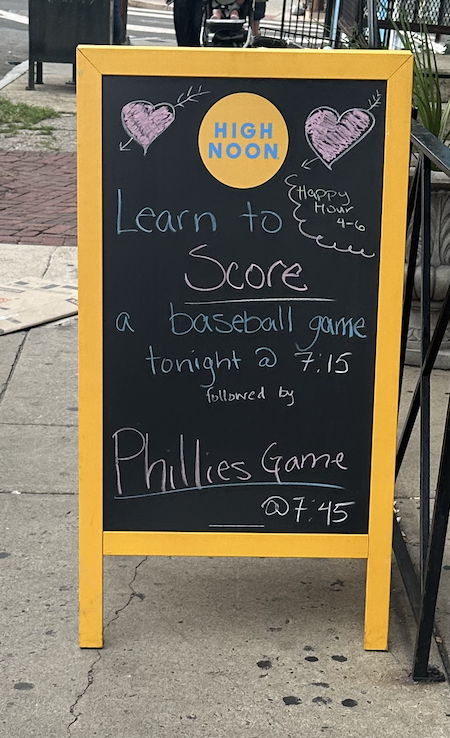 HIGH
NOON
Happy
Hour
4-6
Learn to
Score
a baseball game
tonight @ 7:15
followed by
Phillies Game
@ 7:45